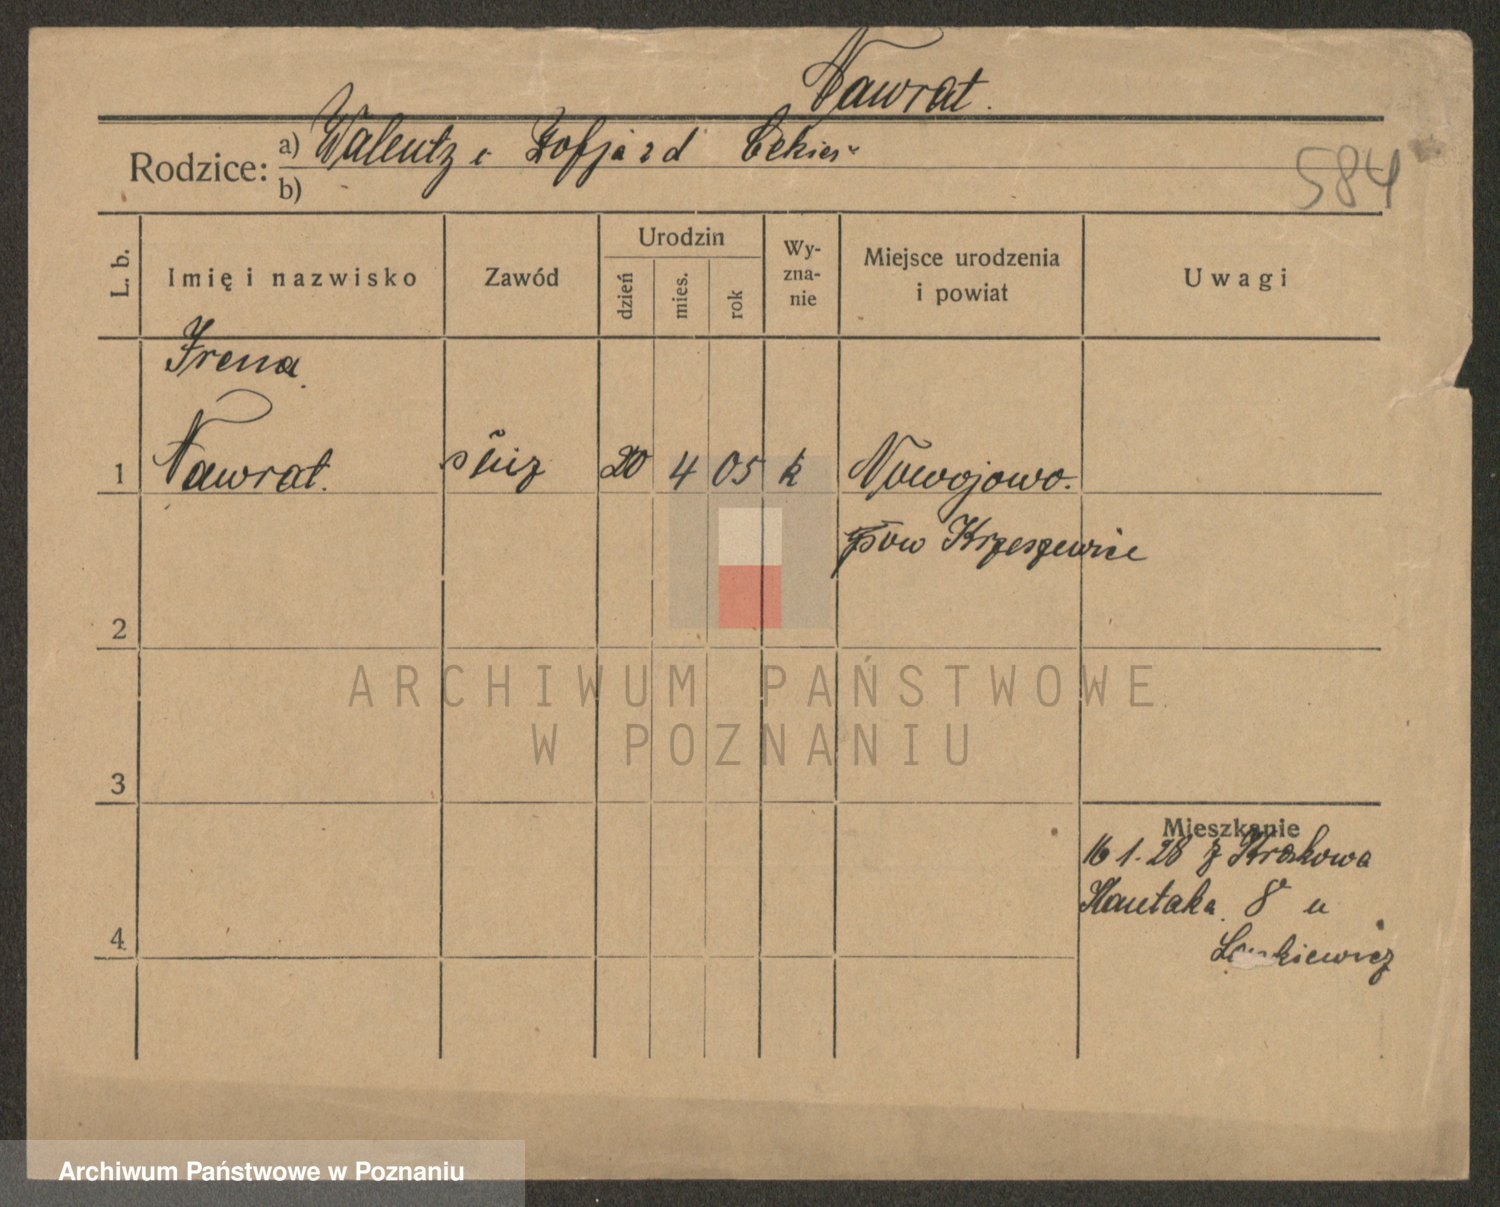 Nawrat.
Rodzice: a) Walenty i Zofja z d
b)
584
L. b. Imię i nazwisko Zawód Urodzin dzień mies. rok Wyznanie Miejsce urodzenia i powiat Uwagi
Irena
1 Nawrat. służ 20 4 05 k Nowojowo.
pow Krzeszewice
2
ARCHIWUM PAŃSTWOWE
W POZNANIU
3
Mieszkanie
16 1. 28 z Krakowa
Kantaka 8 u
4
Archiwum Państwowe w Poznaniu